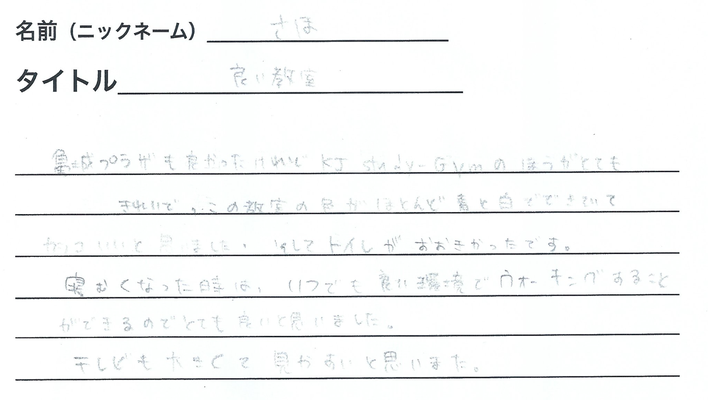 名前（ニックネーム） さほ
タイトル 良い教室
プラザも良かったけれど KJ study-Gymのほうがとても
きれいで、この教室の色がほとんど青と白でできていて
かっこいいと思いました。そしてトイレがおおきかったです。
寝むくなった時は、いつでも良い環境でウォーキングすること
ができるのでとても良いと思いました。
テレビも大きくて見やすいと思いました。